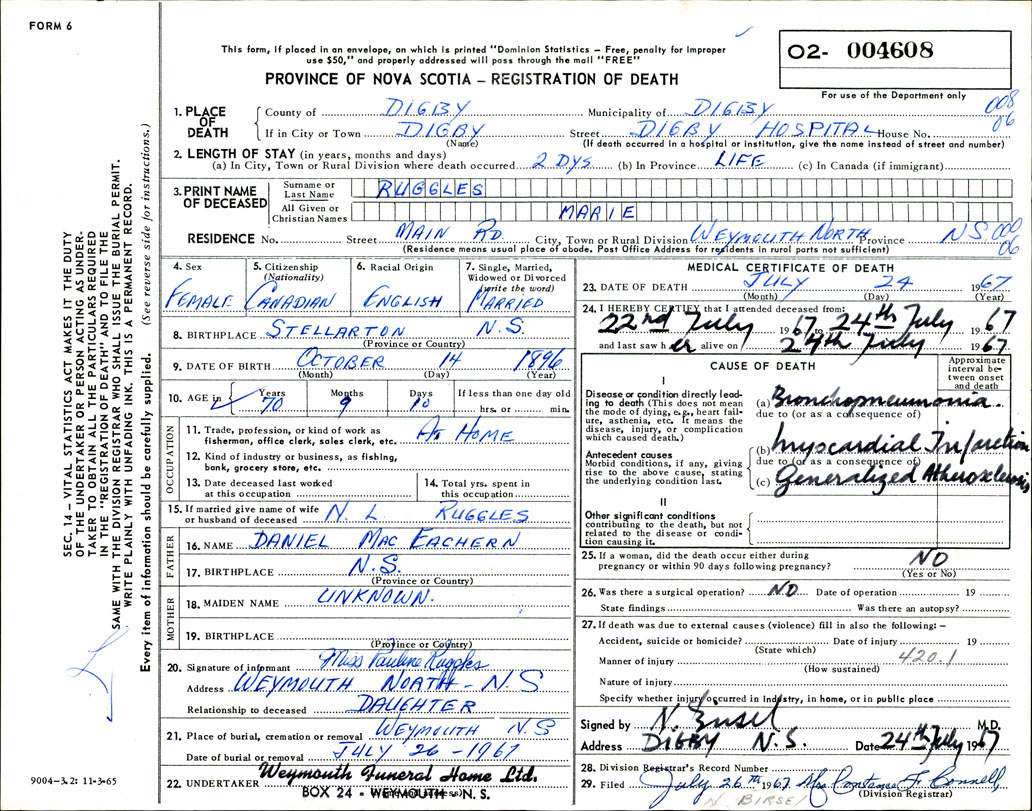 FORM 6
This form, if placed in an envelope, on which is printed "Dominion Statistics – Free, penalty for improper
use $50," and properly addressed will pass through the mail "FREE"
PROVINCE OF NOVA SCOTIA – REGISTRATION OF DEATH
02- 004608
For use of the Department only
008
06
1. PLACE OF DEATH
County of DIGBY Municipality of DIGBY
If in City or Town DIGBY Street DIGBY HOSPITAL House No.
(Name) (If death occurred in a hospital or institution, give the name instead of street and number)
2. LENGTH OF STAY (in years, months and days)
(a) In City, Town or Rural Division where death occurred 2 DYS (b) In Province LIFE (c) In Canada (if immigrant)
3. PRINT NAME OF DECEASED
Surname or Last Name RUGGLES
All Given or Christian Names MARIE
RESIDENCE No. Street MAIN RD City, Town or Rural Division WEYMOUTH NORTH Province NS 000
06
(Residence means usual place of abode. Post Office Address for residents in rural parts not sufficient)
4. Sex 5. Citizenship (Nationality) 6. Racial Origin 7. Single, Married, Widowed or Divorced (write the word)
FEMALE CANADIAN ENGLISH MARRIED
8. BIRTHPLACE STELLARTON N.S.
(Province or Country)
9. DATE OF BIRTH OCTOBER 14 1896
(Month) (Day) (Year)
10. AGE in Years Months Days If less than one day old
70 9 10 hrs. or min.
OCCUPATION
11. Trade, profession, or kind of work as
fisherman, office clerk, sales clerk, etc. AT HOME
12. Kind of industry or business, as fishing,
bank, grocery store, etc.
13. Date deceased last worked
at this occupation
14. Total yrs. spent in
this occupation
15. If married give name of wife
or husband of deceased N. L RUGGLES
FATHER
16. NAME DANIEL MAC EACHERN
17. BIRTHPLACE N.S.
(Province or Country)
MOTHER
18. MAIDEN NAME UNKNOWN.
19. BIRTHPLACE
(Province or Country)
20. Signature of informant Miss Pauline Ruggles
Address WEYMOUTH NORTH - N.S
Relationship to deceased DAUGHTER
21. Place of burial, cremation or removal WEYMOUTH N S
Date of burial or removal JULY 26 - 1967
22. UNDERTAKER Weymouth Funeral Home Ltd.
BOX 24 - WEYMOUTH - N. S.
MEDICAL CERTIFICATE OF DEATH
23. DATE OF DEATH JULY 24 1967
(Month) (Day) (Year)
24. I HEREBY CERTIFY that I attended deceased from:
22nd July 1967 to 24th July 1967
and last saw her alive on 24th July 1967
CAUSE OF DEATH
Approximate interval between onset and death
I
Disease or condition directly leading to death (This does not mean
the mode of dying, e.g., heart failure, asthenia, etc. It means the
disease, injury, or complication
which caused death.)
(a) Bronchopneumonia
due to (or as a consequence of)
Antecedent causes
Morbid conditions, if any, giving
rise to the above cause, stating
the underlying condition last.
(b) Myocardial Infarction
due to (or as a consequence of)
(c) Generalized Atherosclerosis
II
Other significant conditions
contributing to the death, but not
related to the disease or condition causing it.
25. If a woman, did the death occur either during
pregnancy or within 90 days following pregnancy? NO
(Yes or No)
26. Was there a surgical operation? NO Date of operation 19
State findings Was there an autopsy?
27. If death was due to external causes (violence) fill in also the following: –
Accident, suicide or homicide? Date of injury 19
(State which)
Manner of injury 420.1
(How sustained)
Nature of injury
Specify whether injury occurred in Industry, in home, or in public place
Signed by N. Birsel M.D.
Address DIGBY N.S. Date 24th July 1967
28. Division Registrar's Record Number
29. Filed July 26th 1967 Mrs Constance F. Connell,
(Division Registrar)
N. BIRSEL
SEC. 14 – VITAL STATISTICS ACT MAKES IT THE DUTY
OF THE UNDERTAKER OR PERSON ACTING AS UNDER-
TAKER TO OBTAIN ALL THE PARTICULARS REQUIRED
IN THE "REGISTRATION OF DEATH" AND TO FILE THE
SAME WITH THE DIVISION REGISTRAR WHO SHALL ISSUE THE BURIAL PERMIT.
WRITE PLAINLY WITH UNFADING INK. THIS IS A PERMANENT RECORD.
Every item of information should be carefully supplied. (See reverse side for instructions.)
9004-3.2: 11-3-65